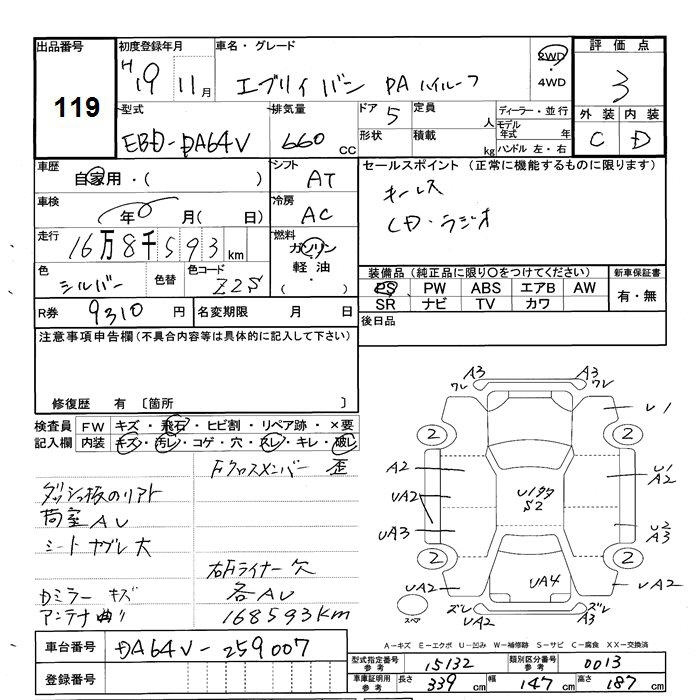 出品番号
119
初度登録年月
H 19 11月
車名・グレード
エブリイバン PAハイルーフ
2WD
・
4WD
評価点
3
外装 内装
C D
型式
EBD-DA64V
排気量
660 CC
ドア 5
形状
定員 人
積載 kg
ディーラー・並行
モデル年式 年
ハンドル 左・右
車歴
自家用・( )
シフト
AT
車検
年 月( 日)
冷房
AC
走行
16万8千593 km
燃料
ガソリン
軽油
( ・ )
色
シルバー
色替
色コード
Z2S
R券 9310 円
名変期限 月 日
セールスポイント (正常に機能するものに限ります)
キーレス
CD・ラジオ
装備品 (純正品に限り○をつけてください)
PS PW ABS エアB AW
SR ナビ TV カワ
新車保証書
有・無
後日品
注意事項申告欄(不具合内容等は具体的に記入して下さい)
修復歴 有 〔箇所 〕
検査員記入欄
FW キズ・飛石・ヒビ割・リペア跡・×要
内装 キズ・汚レ・コゲ・穴・スレ・キレ・破レ
Fクロスメンバー 歪
ダッシュ板のリアト
荷室AU
シートヤブレ大
右Fライナー欠
Dミラーキズ
各AU
アンテナ曲り
168593km
A3 A3
ワレ ワレ
U1
2 2
A2
U1
A2
UA2
U1タタ
S2
UA3
U2
A3
2 2
UA2
UA4
UA2
ズレ
UA2
ズレ
A3
スペア
A-キズ E-エクボ U-凹み W-補修跡 S-サビ C-腐食 XX-交換済
車台番号 DA64V-259007
登録番号
型式指定番号 参考 15132
類別区分番号 参考 0013
車庫証明用 参考 長さ 339 cm 幅 147 cm 高さ 187 cm